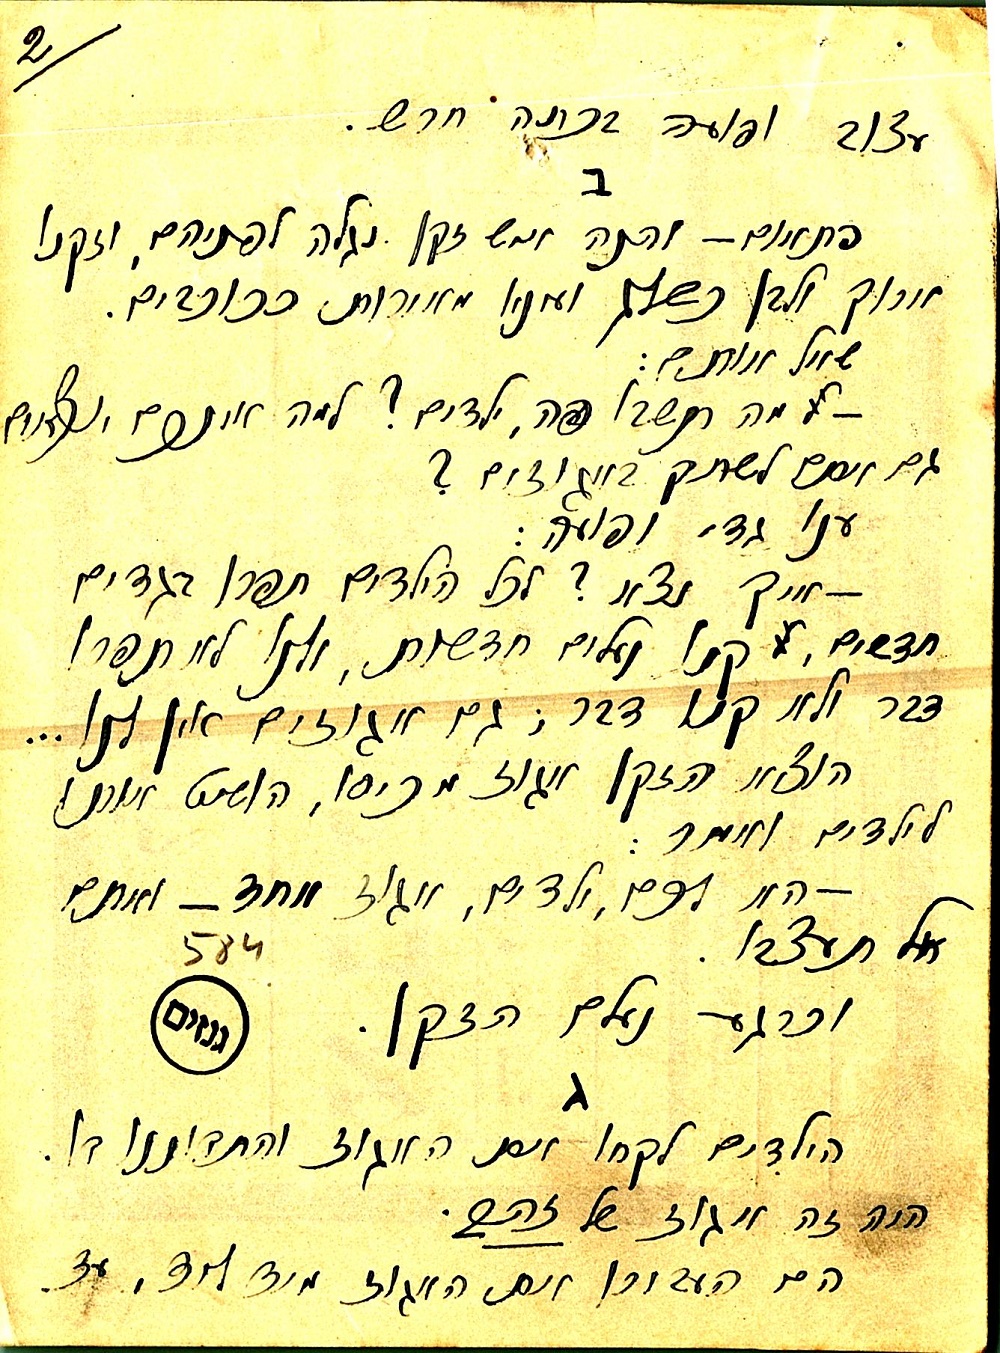 2/
עצוב ופועה בכתה חרש.
ב
פתאום – והנה איש זקן נגלה לפניהם, וזקנו
ארוך ולבן כשלג ועיניו מאירות ככוכבים.
שאל אותם:
– על מה תשבו פה, ילדים? למה אינכם יוצאים
גם אתם לשחק באגוזים?
ענו גדי ופועה:
– איך נצא? לכל הילדים תפרו בגדים
חדשים, קנו נעלים חדשות, ולנו לא תפרו
דבר ולא קנו דבר; גם אגוזים אין לנו...
הוציא הזקן אגוז מכיסו, הושיט אותו
לילדים ואמר:
– הא לכם, ילדים, אגוז אחד – ואתם
אל תעצבו.
584
וכרגע נעלם הזקן.
גנזים
ג
הילדים לקחו את האגוז והתבוננו בו.
הנה זה אגוז של זהב.
הם העבירו את האגוז מיד ליד, עד